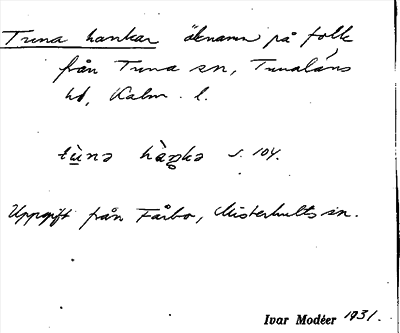 Tuna hankar öknamn på folk
från Tuna sn, Tunaläns
hd, Kalm. l.
tùnə hàŋkə s. 104.
Uppgift från Fårbo, Misterhults sn.
Ivar Modéer 1931.